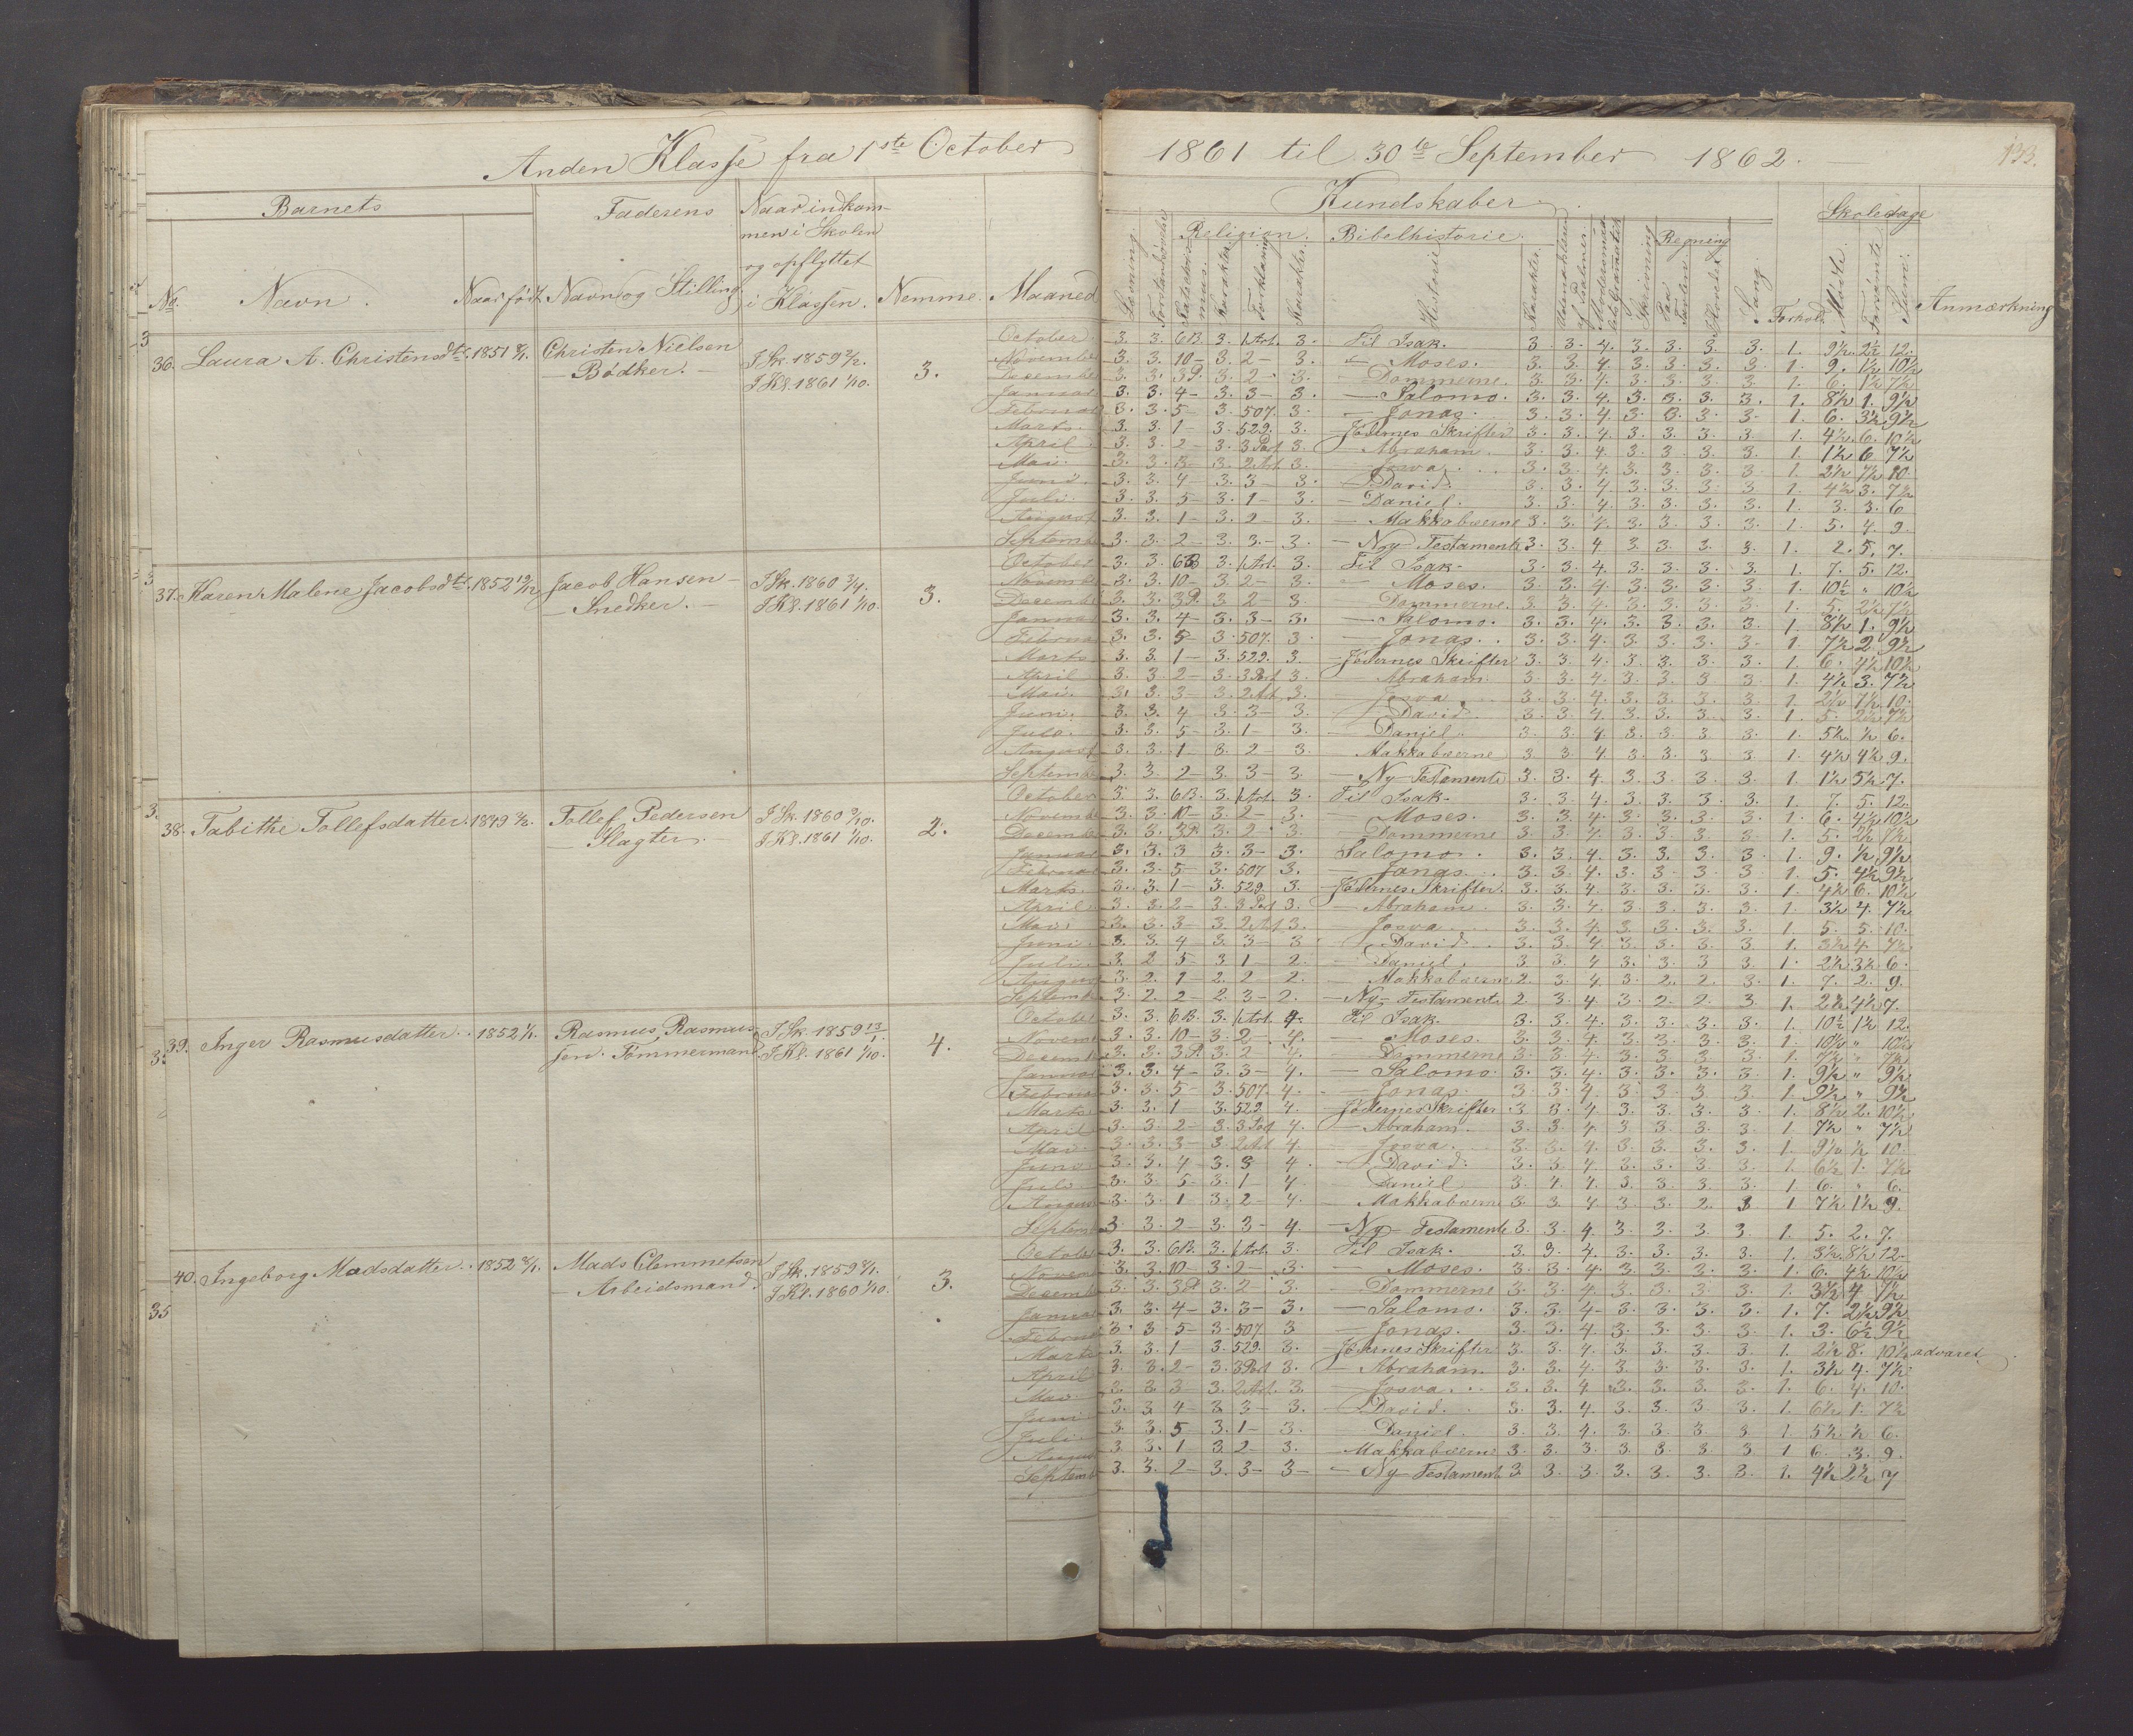 Anden Klasse fra 1ste October 1861 til 30te September 1862.
133.
Barnets
Faderens
Naar indkommen i Skolen og opflyttet i Klassen.
Kundskaber
Skoledage
No.
Navn.
Naar født
Navn og Stilling
Nemme.
Maaned
Læsning.
Religion.
Bibelhistorie
Historie
Karakter.
Skrivning
Regning
Sang.
Forhold
Mødte.
Forsømte
Sum.
Anmærkning
3
36. Laura A. Christensdtr. 1851
Christen Nielsen
- Bødker. -
I Sk. 1859
I Kl. 1861 1/10.
3.
October 3. 3. 6B. 3. 1 Art. 3. Til Isak. 3. 3. 4. 3. 3. 3. 3. 1. 9½ 2½ 12.
November 3. 3. 10- 3. 2- 3. - Moses. 3. 3. 4. 3. 3. 3. 3. 1. 9. 1½ 10½
December 3. 3. 3P. 3. 2- 3. - Dommerne. 3. 3. 4. 3. 3. 3. 3. 1. 6. 1½ 7½
Januar 3. 3. 4- 3. 3- 3. - Salomo. 3. 3. 4. 3. 3. 3. 3. 1. 8½ 1. 9½
Februar 3. 3. 5- 3. 507. 3. - Jonas. 3. 3. 4. 3. 3. 3. 3. 1. 6. 3½ 9½
Marts. 3. 3. 1- 3. 529. 3. - Jødernes Skrifter 3. 3. 4. 3. 3. 3. 3. 1. 4½ 6. 10½
April 3. 3. 2- 3. 3 Part 3. - Abraham. 3. 3. 4. 3. 3. 3. 3. 1. 1½ 6 7½
Mai. 3. 3. 3- 3. 2 Art 3. - Josva. 3. 3. 4. 3. 3. 3. 3. 1. 2½ 7½ 10.
Juni. 3. 3. 4- 3. 3- 3. - David. 3. 3. 4. 3. 3. 3. 3. 1. 4½ 3. 7½
Juli. 3. 3. 5- 3. 1- 3. - Daniel. 3. 3. 4. 3. 3. 3. 3. 1. 3. 3. 6
August 3. 3. 1- 3. 2- 3. - Makkabæerne 3. 3. 4. 3. 3. 3. 3. 1. 5. 4. 9.
September 3. 3. 2- 3. 3- 3. - Ny Testamente 3. 3. 4. 3. 3. 3. 3. 1. 2. 5. 7.
3
37. Karen Malene Jacobsdtr. 1852
Jacob Hansen -
- Snedker. -
I Sk. 1860 3/4.
I Kl. 1861 1/10.
3.
October 3. 3. 6B 3. 1 Art. 3. Til Isak- 3. 3. 4. 3. 3. 3. 3. 1. 7. 5. 12.
November 3. 3. 10- 3. 2- 3. - Moses. 3. 3. 4. 3. 3. 3. 3. 1. 10½ " 10½
December 3. 3. 3P. 3. 2- 3. - Dommerne. 3. 3. 4. 3. 3. 3. 3. 1. 5. 2½ 7½
Januar 3. 3. 4- 3. 3- 3. - Salomo. 3. 3. 4. 3. 3. 3. 3. 1. 8½ 1. 9½
Februar 3. 3. 5- 3. 507. 3. - Jonas. 3. 3. 4. 3. 3. 3. 3. 1. 7½ 2. 9½
Marts 3. 3. 1- 3. 529. 3. - Jødernes Skrifter 3. 3. 4. 3. 3. 3. 3. 1. 6. 4½ 10½
April 3. 3. 2- 3. 3 Part 3. - Abraham. 3. 3. 4. 3. 3. 3. 3. 1. 4½ 3. 7½
Mai. 3. 3. 3- 3. 2 Art 3. - Josva 3. 3. 4. 3. 3. 3. 3. 1. 2½ 7½ 10.
Juni. 3. 3. 4 3. 3- 3. - David. 3. 3. 4. 3. 3. 3. 3. 1. 5. 2½ 7½
Juli. 3. 3. 5- 3. 1- 3. - Daniel. 3. 3. 4. 3. 3. 3. 3. 1. 5½ ½ 6.
August 3. 3. 1 3. 2- 3. Makkabæerne 3. 3. 4 3. 3. 3. 3. 1. 4½ 4½ 9.
September 3. 3. 2- 3. 3- 3. - Ny Testamente 3. 3. 4. 3. 3. 3. 3. 1. 1½ 5½ 7.
3.
38. Tabithe Tollefsdatter. 1849
Tollef Pedersen
- Slagter. -
I Sk. 1860
I Kl. 1861 1/10.
2.
October 3. 3. 6B. 3. 1 Art. 3. Til Isak- 3. 3. 4. 3. 3. 3. 3. 1. 7. 5. 12.
November 3. 3. 10- 3. 2- 3. - Moses. 3. 3. 4. 3. 3. 3. 3. 1. 6. 4½ 10½
December 3. 3. 3P. 3. 2. 3. - Dommerne 3. 3. 4. 3. 3. 3. 3. 1. 5. 2½ 7½
Januar 3. 3. 3 3. 3- 3. Salomo. 3. 3. 4. 3. 3. 3. 3. 1. 9. ½ 9½
Februar 3. 3. 5- 3. 507 3. - Jonas. 3. 3. 4. 3. 3. 3. 3. 1. 5. 4½ 9½
Marts. 3. 3. 1- 3. 529. 3. - Jødernes Skrifter. 3. 3. 4. 3. 3. 3. 3. 1. 4½ 6. 10½
April. 3. 3. 2- 3. 3 Part 3. - Abraham. 3. 3. 4. 3. 3. 3. 3. 1. 3½ 4. 7½
Mai 3. 3. 3- 3. 2 Art 3. - Josva. 3. 3. 4. 3. 3. 3. 3. 1. 5. 5. 10.
Juni 3. 3. 4- 3. 3- 3. - David. 3. 3. 4. 3. 3. 3. 3. 1. 3½ 4. 7½
Juli. 3. 2 5- 3. 1- 2. - Daniel. 3. 3. 4 3. 3. 3. 3. 1. 2½ 3½ 6.
August 3. 2. 1- 2. 2- 2. - Makkabæerne 2. 3. 4. 3. 2. 2. 3. 1. 7. 2. 9.
September 3. 2. 2- 2. 3- 2. - Ny Testamente 2. 3. 4. 3. 2. 2. 3. 1. 2½ 4½ 7.
3.
39. Inger Rasmusdatter. 1852
Rasmus Rasmussen. Tømmermand
I Sk. 1859 13/1.
I Kl. 1861 1/10.
4.
October 3. 3. 6B. 3. 1 Art. 4. Til Isak. 3. 3. 4. 3. 3. 3. 3. 1. 10½ 1½ 12.
November 3. 3. 10- 3. 2. 4. - Moses. 3. 3. 4. 3. 3. 3. 3. 1. 10½ " 10½
December 3. 3. 3P. 3. 2 4. - Dommerne 3. 3. 4. 3. 3. 3. 3. 1. 7½ " 7½
Januar 3. 3. 4- 3. 3- 4. - Salomo. 3. 3. 4. 3. 3. 3. 3. 1. 9½ " 9½
Februar 3. 3. 5- 3. 507. 4. - Jonas. 3. 3. 4. 3. 3. 3. 3. 1. 9½ " 9½
Marts 3. 3. 1- 3. 529. 4. - Jødernes Skrifter 3. 3. 4. 3. 3. 3. 3. 1. 8½ 2. 10½
April 3. 3. 2- 3. 3 Part 4. - Abraham. 3. 3. 4. 3. 3. 3. 3. 1. 7½ " 7½
Mai 3. 3. 3- 3. 2 Art 4 - Josva. 3. 3. 4. 3. 3. 3. 3. 1. 9½ ½ 10.
Juni 3. 3. 4- 3. 3 4. - David. 3. 3. 4. 3. 3. 3. 3. 1. 6½ 1. 7½
Juli 3. 3. 5- 3. 1- 4 - Daniel 3. 4. 4. 3. 3. 3. 3. 1. 6. " 6.
August 3. 3. 1 3. 2- 4. - Makkabæerne 3. 3. 4. 3. 3. 2. 3 1 7½ 1½ 9.
September 3. 3. 2- 3. 3- 4. - Ny Testamente 3. 3. 4. 3. 3. 3. 3. 1. 5. 2. 7.
35
40. Ingeborg Madsdatter. 1852
Mads Clemmetsen
- Arbeidsmand.
I Sk. 1859
I Kl. 1860 1/10.
3.
October 3. 3. 6B. 3. 1 Art. 3. Til Isak. 3. 3. 4. 3. 3. 3. 3. 1. 3½ 8½ 12.
November 3. 3. 10- 3. 2- 3. - Moses. 3. 3. 4. 3. 3. 3. 3. 1. 6. 4½ 10½
December 3. 3. 3P 3. 2 3. - Dommerne 3. 3. 4. 3. 3. 3. 3. 1. 3½ 4 7½
Januar 3. 3. 4- 3. 3- 3. - Salomo. 3. 3. 4- 3. 3. 3. 3. 1. 7. 2½ 9½
Februar 3. 3. 5- 3. 507 3 - Jonas. 3. 3. 4. 3. 3. 3. 3. 1. 3. 6½ 9½
Marts 3. 3. 1- 3. 529. 3. - Jødernes Skrifter 3. 3. 4. 3. 3. 3. 3. 1. 2½ 8. 10½ advaret.
April 3. 3. 2- 3. 3 Part 3. - Abraham. 3. 3. 4. 3. 3. 3. 3. 1. 3½ 4. 7½
Mai 3. 3. 3- 3. 2 Art. 3. - Josva. 3. 3. 4. 3. 3. 3. 3. 1. 6. 4. 10.
Juni 3. 3. 4- 3. 3- 3. - David. 3. 3. 4. 3. 3. 3. 3. 1. 6½ 1. 7½
Juli 3. 3. 5 3. 1- 3. Daniel. 3. 3. 4. 3. 3. 3. 3. 1. 5½ ½ 6.
August 3. 3. 1 3. 2- 3. - Makkabæerne 3. 3. 3. 3. 3. 3. 3 1 6. 3. 9.
September 3. 3. 2- 3. 3- 3- - Ny Testamente 3 3. 3. 3. 3. 3. 3. 1. 4½ 2½ 7